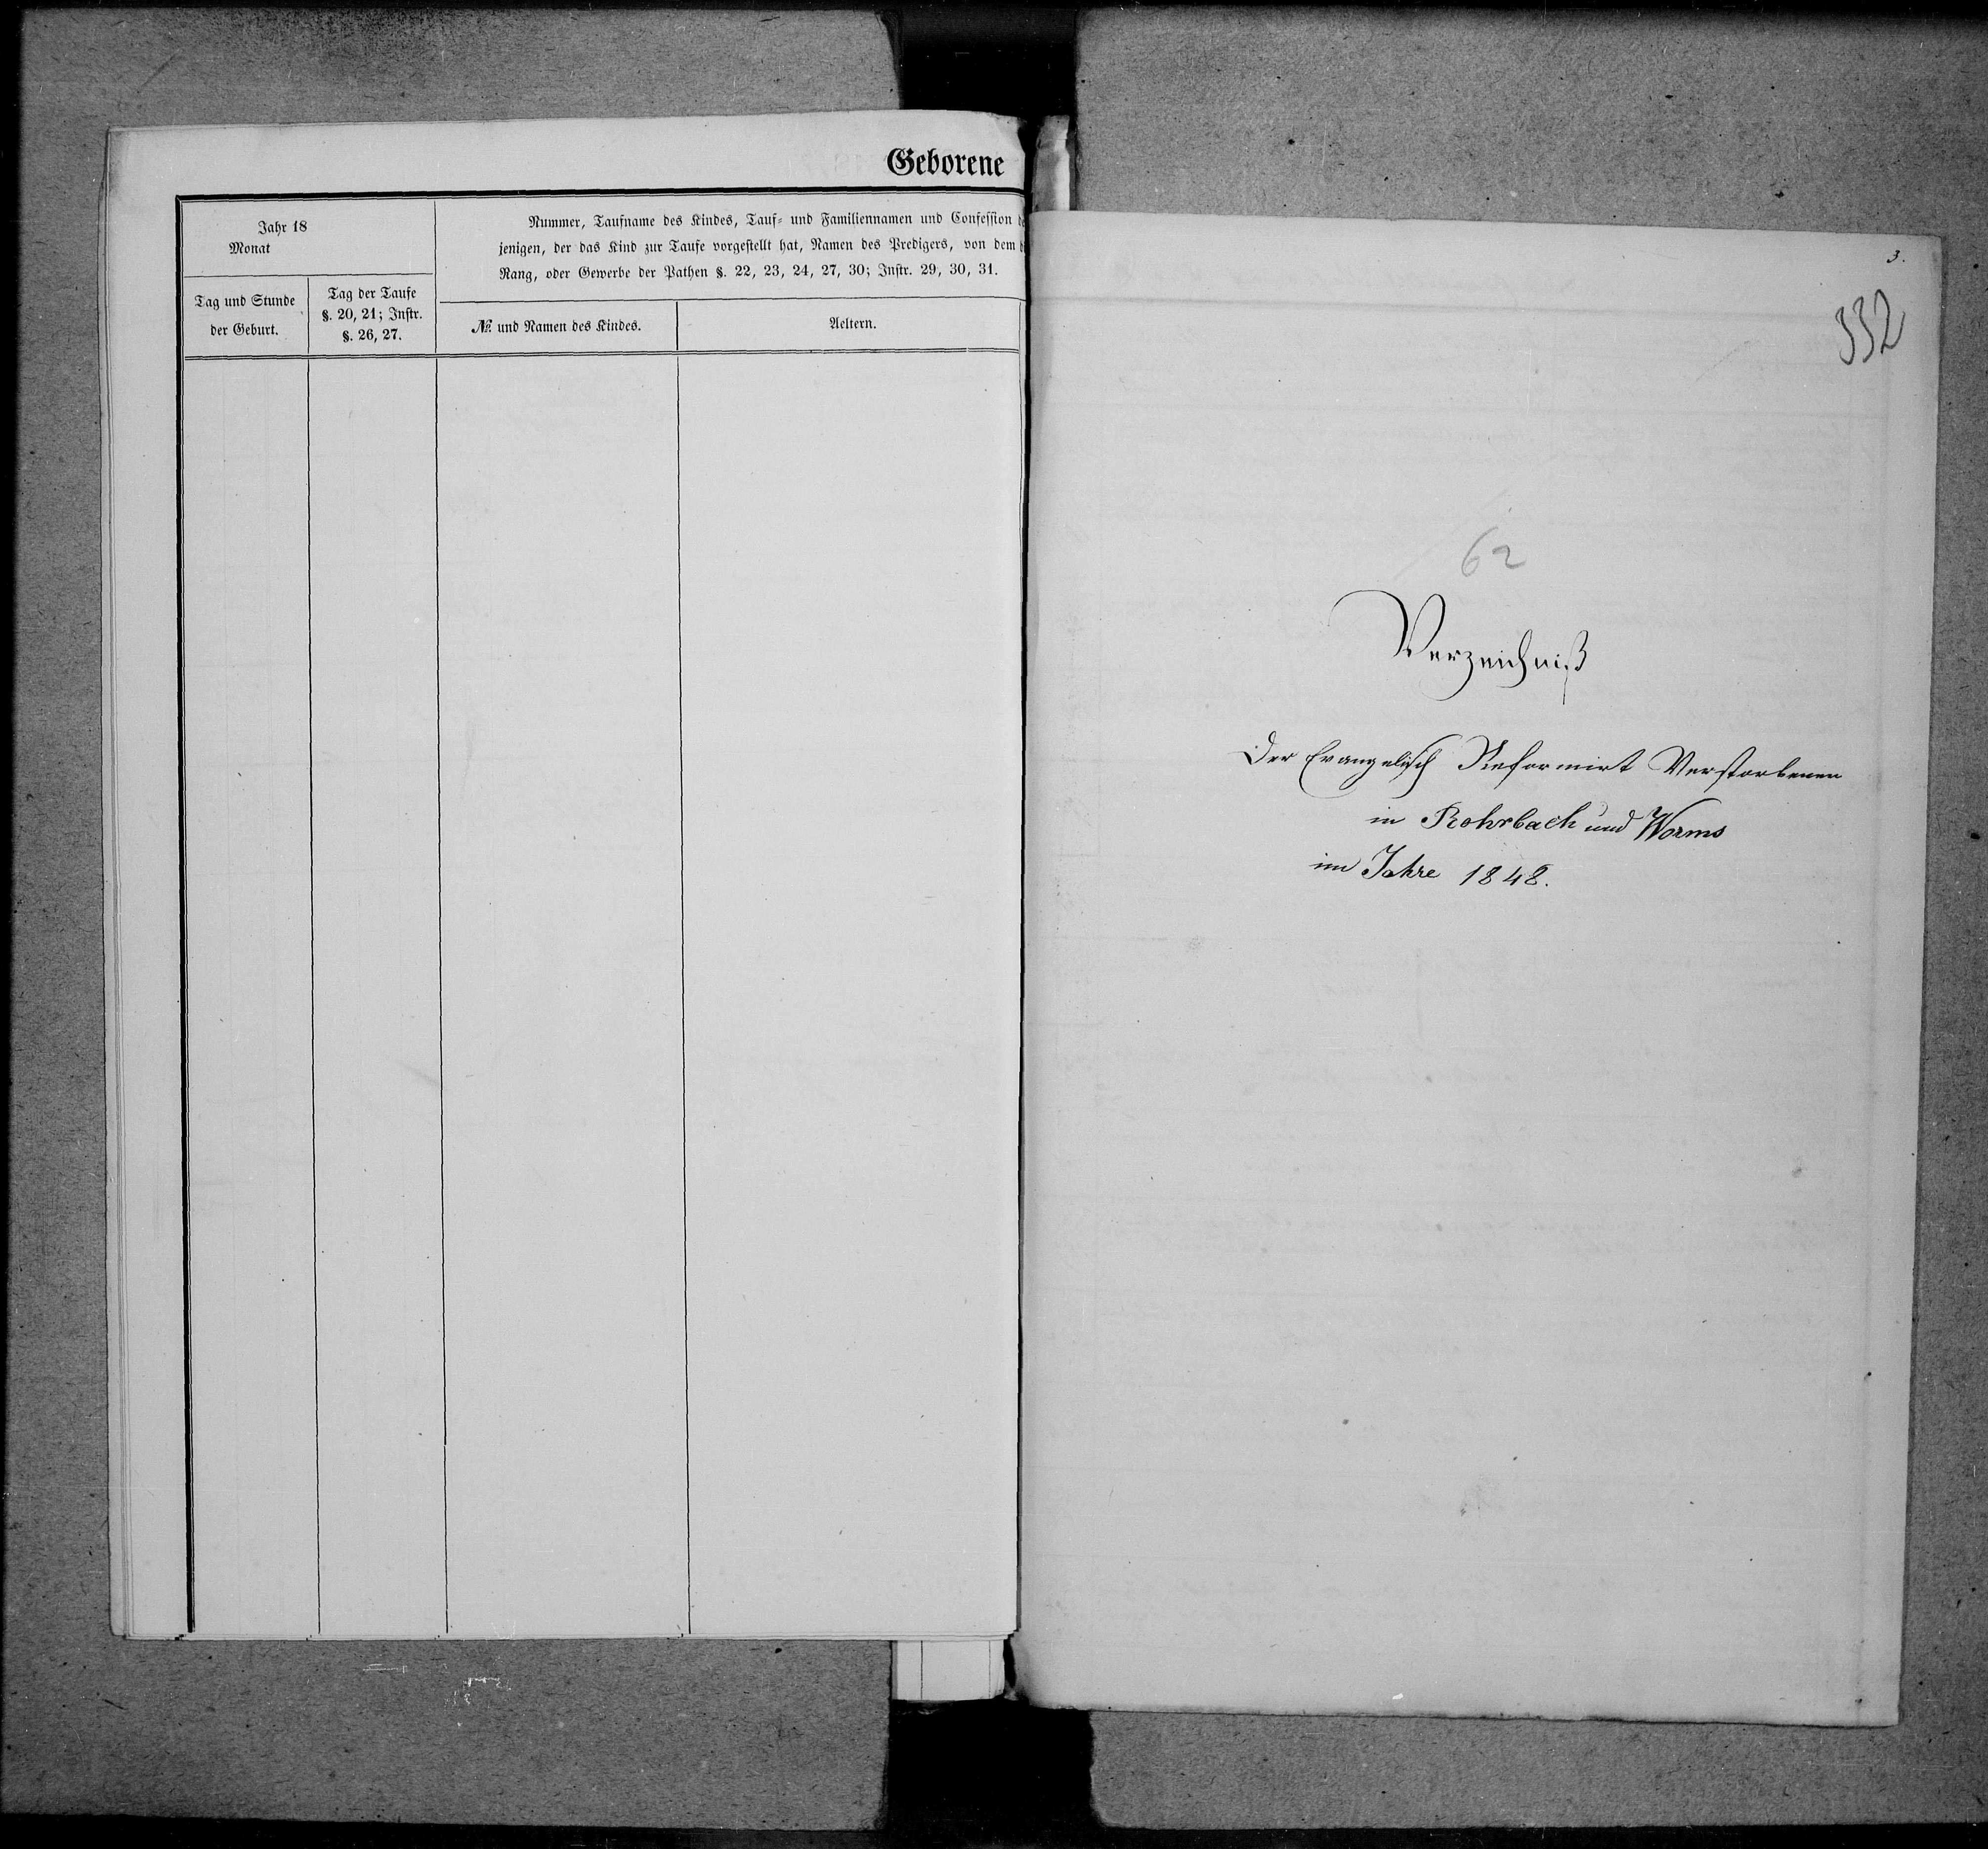 Geborene
Jahr 18
Monat
Tag und Stunde
der Geburt.
Tag der Taufe
§. 20, 21; Instr.
§. 26, 27.
Nummer, Taufname des Kindes, Tauf- und Familiennamen und Confession
jenigen, der das Kind zur Taufe vorgestellt hat, Namen des Predigers, von dem
Rang, oder Gewerbe der Pathen §. 22, 23, 24, 27, 30; Instr. 29, 30, 31.
№ und Namen des Kindes.
Aeltern.
3.
332
62
Verzeichniß
Der Evangelisch Reformirt Verstorbenen
in Rohrbach und Worms
im Jahre 1848.